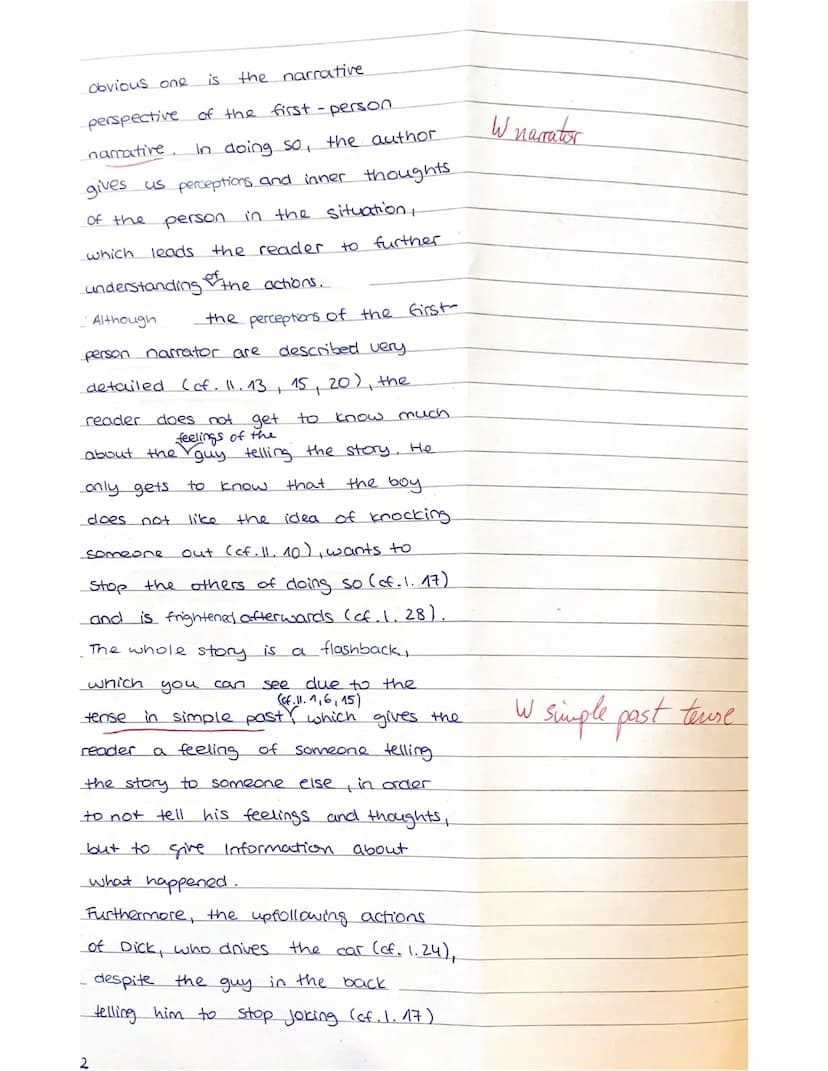 obvious one is the narrative
perspective of the first-person
narrative. In doing so, the author
W narrator
gives us perceptions and inner thoughts
of the person in the situation,
which leads the reader to further
understanding of the actions.
Although the perceptions of the first-
person narrator are described very
detailed (cf. ll. 13, 15, 20), the
reader does not get to know much
about the feelings of the guy telling the story. He
only gets to know that the boy
does not like the idea of knocking
someone out (cf. ll. 10), wants to
stop the others of doing so (cf. l. 17)
and is frightened afterwards (cf. l. 28).
The whole story is a flashback,
which you can see due to the
tense in simple past (cf. ll. 1, 6, 15) which gives the
W simple past tense
reader a feeling of someone telling
the story to someone else, in order
to not tell his feelings and thoughts,
but to give Information about
what happened.
Furthermore, the upfollowing actions
of Dick, who drives the car (cf. l. 24),
despite the guy in the back
telling him to stop joking (cf. l. 17)
2